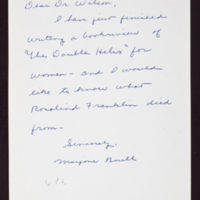 Dear Dr. Watson,
I have just finished
writing a book review of
"The Double Helix" for
women - and I would
like to know what
Rosalind Franklin died
from.
Sincerely,